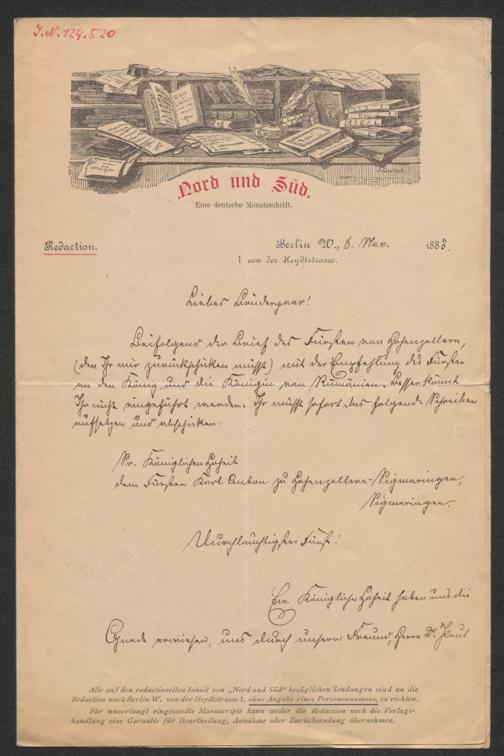 I.N. 124.520
Nord und Süd.
Eine deutsche Monatsschrift.
Redaction.
Berlin W., 8. Nov. 1883.
1 von der Heydtstrasse.
Liebes Brüderpaar!
Beifolgend der Brief des Fürsten von Hohenzollern,
(den Ihr mir zurückschicken müßt) mit der Empfehlung des Fürsten
an den König und die Königin von Rumänien. Besser könnt
Ihr nicht eingeführt werden. Ihr müßt sofort das folgende Schreiben
aufsetzen und abschicken:
Sr. Königlichen Hoheit
dem Fürsten Karl Anton zu Hohenzollern-Sigmaringen,
Sigmaringen.
Durchlauchtigster Fürst!
Ew. Königliche Hoheit haben uns die
Gnade erwiesen, uns durch unsern Freund, Herrn Dr. Paul
Alle auf den redactionellen Inhalt von „Nord und Süd“ bezüglichen Sendungen sind an die
Redaction nach Berlin W. von der Heydtstrasse 1, ohne Angabe eines Personennamens, zu richten.
Für unverlangt eingesandte Manuscripte kann weder die Redaction noch die Verlags-
handlung eine Garantie für Beurtheilung, Annahme oder Zurücksendung übernehmen.